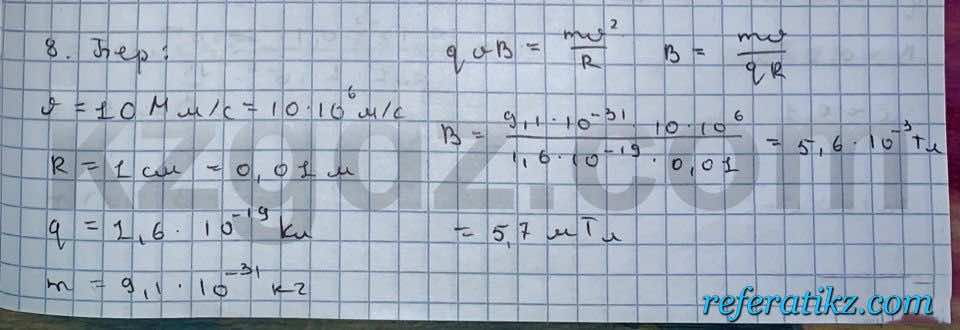 8. Бер:
υ = 10 Мм/с = 10·10⁶ м/с
R = 1 см = 0,01 м
q = 1,6·10⁻¹⁹ Кл
m = 9,1·10⁻³¹ кг
qυB = mυ²/R   B = mυ/qR
B = 9,1·10⁻³¹·10·10⁶/1,6·10⁻¹⁹·0,01 = 5,6·10⁻³ Тл
= 5,7 мТл
kzgdz.com
referatikz.com